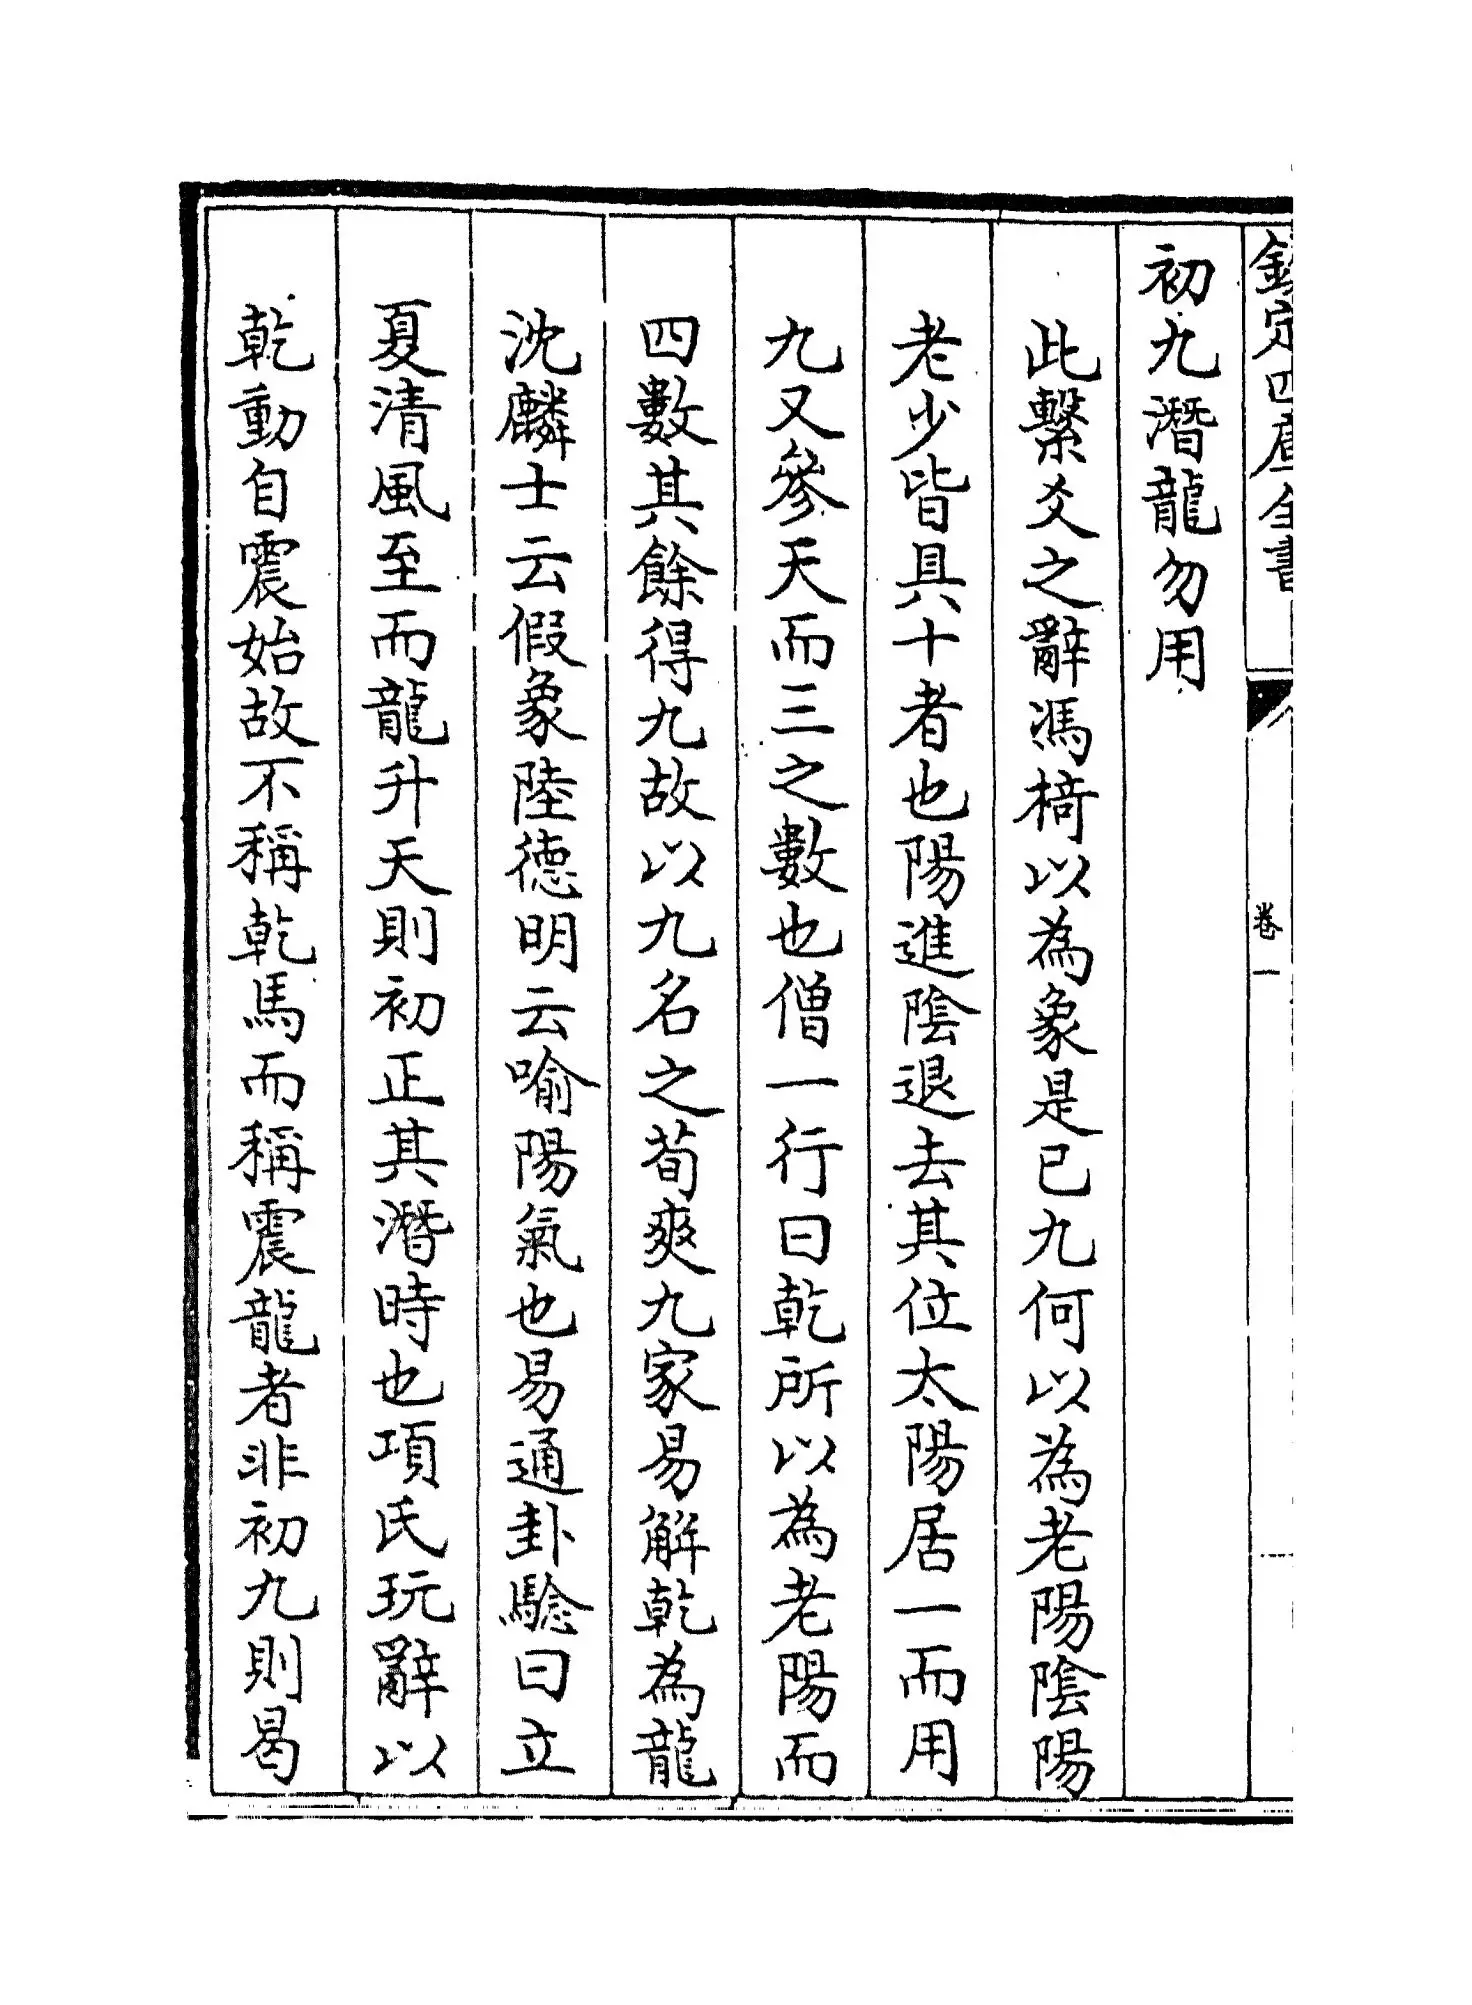 欽定四庫全書
卷一
初九潛龍勿用
此繫爻之辭馮椅以為象是已九何以為老陽陰陽
老少皆具十者也陽進陰退去其位太陽居一而用
九又參天而三之數也僧一行曰乾所以為老陽而
四數其餘得九故以九名之荀爽九家易解乾為龍
沈麟士云假象陸德明云喻陽氣也易通卦驗曰立
夏清風至而龍升天則初正其潛時也項氏玩辭以
乾動自震始故不稱乾馬而稱震龍者非初九則曷